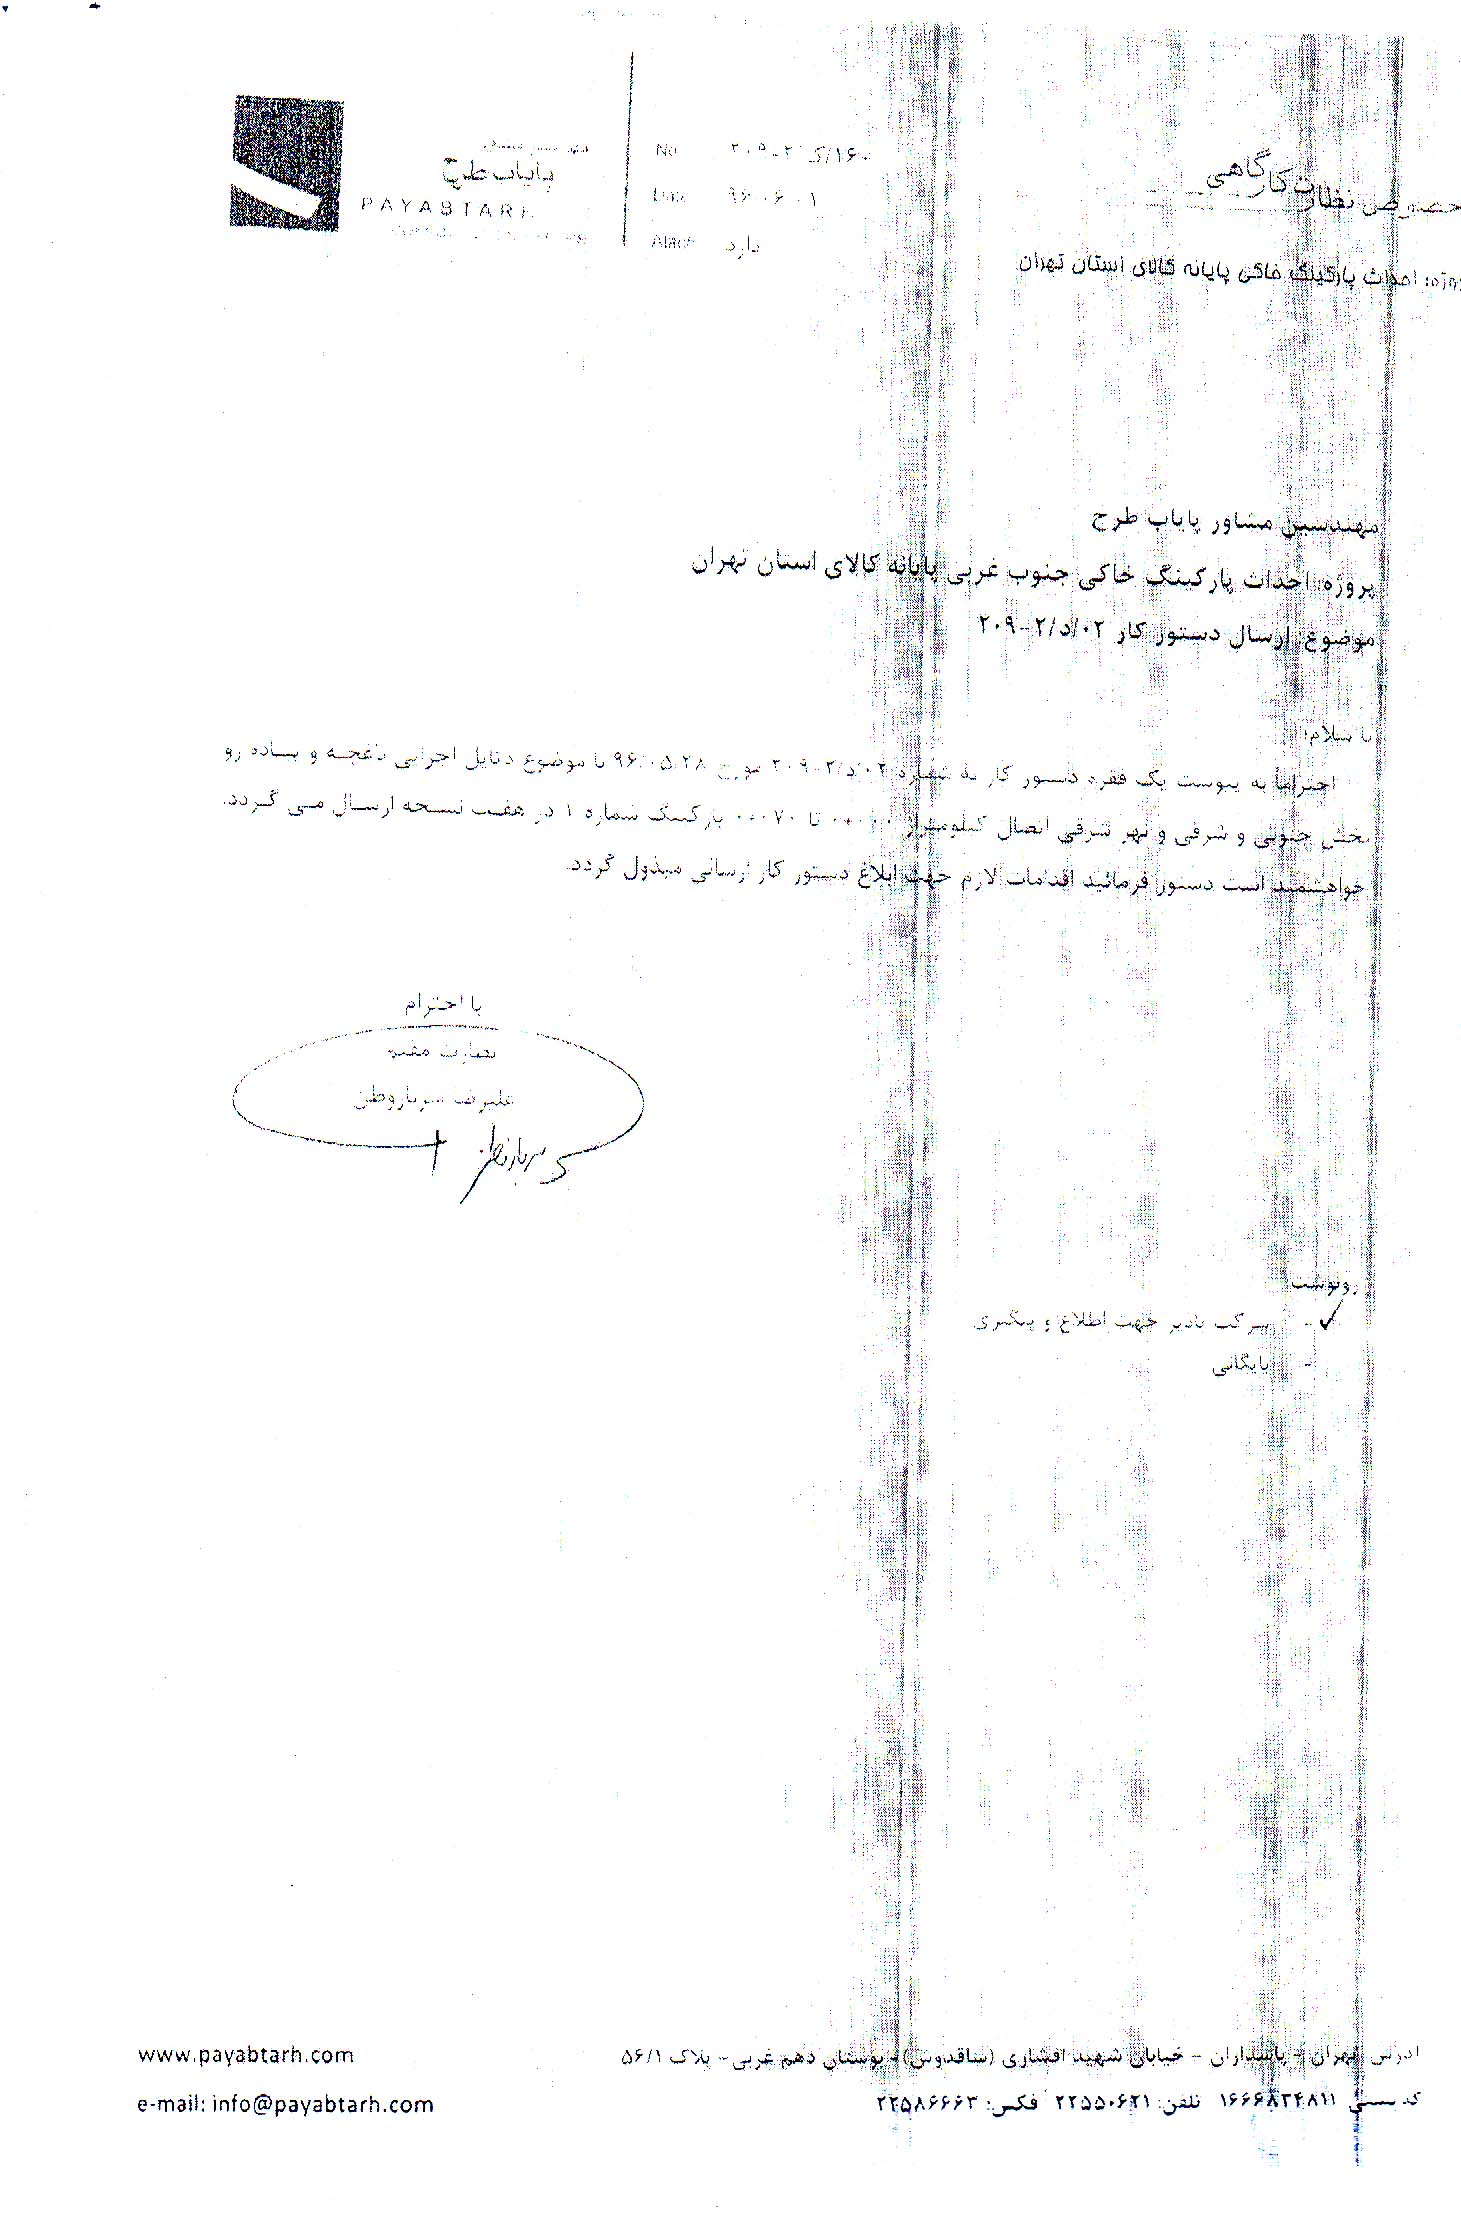 پایاب طرح
PAYABTARH
No ۲۰۹-۲/ک/۱۶۰
Date ۹۶۰۶۰۱
Atach دارد
نظارت کارگاهی
احداث پارکینگ خاکی پایانه کالای استان تهران
مهندسین مشاور پایاب طرح
پروژه: احداث پارکینگ خاکی جنوب غربی پایانه کالای استان تهران
موضوع: ارسال دستور کار ۲۰۹-۲/د/۰۲
با سلام؛
احتراماً به پیوست یک فقره دستور کار به شماره ۲۰۹-۲/د/۰۲ مورخ ۹۶.۰۵.۲۸ با موضوع اجرایی باغچه و پیاده رو
بخش جنوبی و شرقی و نهر شرقی اتصال کیلومتراژ تا ۰+۰۷۰ پارکینگ شماره ۱ در هفت نسخه ارسال می گردد.
خواهشمند است دستور فرمائید اقدامات لازم جهت ابلاغ دستور کار ارسالی مبذول گردد.
با احترام
نظارت مقیم
علیرضا سرباز وطن
رونوشت:
- شرکت جهت اطلاع و پیگیری
- بایگانی
www.payabtarh.com
آدرس: تهران - پاسداران - خیابان شهید افشاری (ساقدوش) - بوستان دهم غربی - پلاک ۵۶/۱
e-mail: info@payabtarh.com
کد پستی ۱۶۶۶۸۳۴۸۱۱ تلفن: ۲۲۵۵۰۶۲۱ فکس: ۲۲۵۸۶۶۶۳